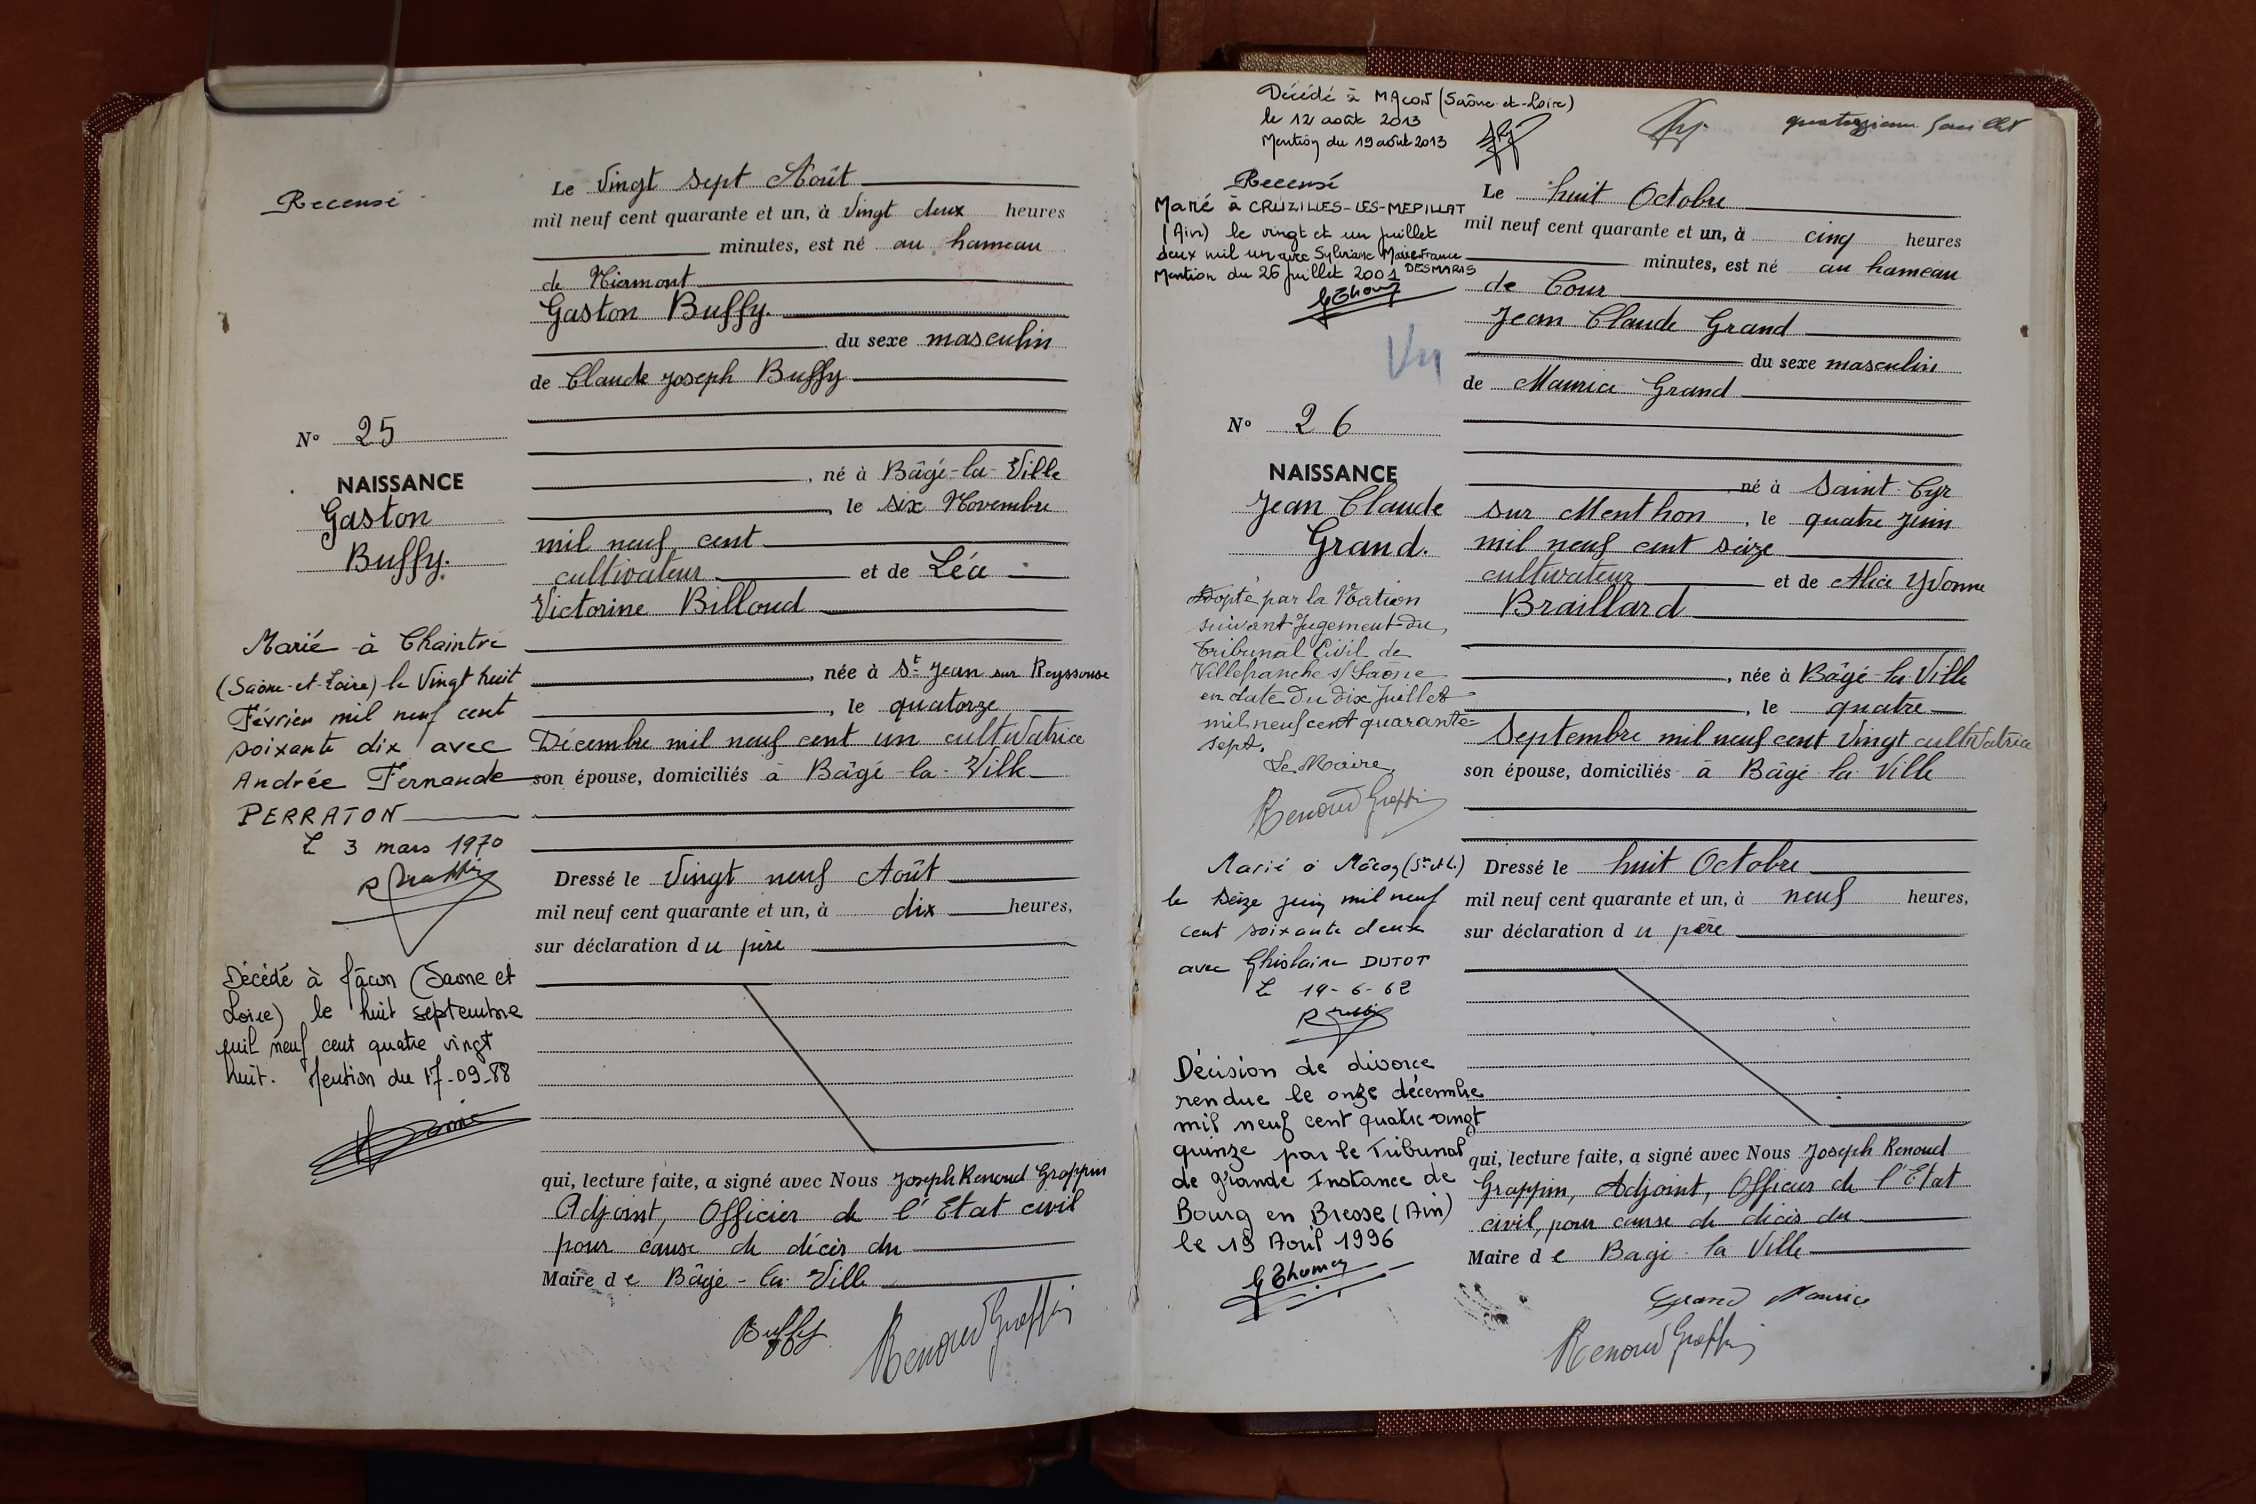 Recensé
Le Vingt Sept Août
mil neuf cent quarante et un, à Vingt deux heures
minutes, est né au hameau
de Niermont
Gaston Buffy.
du sexe masculin
de Claude Joseph Buffy
N° 25
NAISSANCE
Gaston
Buffy.
, né à Bâgé-la-Ville
, le six Novembre
mil neuf cent
cultivateur et de Léa
Victorine Billoud
, née à St Jean sur Reyssouse
, le quatorze
Décembre mil neuf cent un cultivatrice
son épouse, domiciliés à Bâgé-la-Ville
Marié à Chaintré
(Saône-et-Loire) le Vingt huit
Février mil neuf cent
soixante dix avec
Andrée Fernande
PERRATON
Le 3 mars 1970
Dressé le Vingt neuf Août
mil neuf cent quarante et un, à dix heures,
sur déclaration du père
Décédé à Mâcon (Saone et
Loire) le huit septembre
mil neuf cent quatre vingt
huit. Mention du 17-09-88
qui, lecture faite, a signé avec Nous Joseph Renoud Grappin
Adjoint, Officier de l'Etat civil
pour cause de décès du
Maire de Bâgé-la-Ville
Buffy
Renoud Grappin
Décédé à MACON (Saône-et-Loire)
le 12 août 2013
Mention du 19 août 2013
Recensé
Marié à CRUZILLES-LES-MEPILLAT
(Ain) le vingt et un juillet
deux mil un avec Sylviane Marie France
DESMARIS
Mention du 26 juillet 2001
Vu
Le huit Octobre
mil neuf cent quarante et un, à cinq heures
minutes, est né au hameau
de Cour
Jean Claude Grand
du sexe masculin
de Maurice Grand
N° 26
NAISSANCE
Jean Claude
Grand.
né à Saint-Cyr
sur Menthon, le quatre Juin
mil neuf cent seize
cultivateur et de Alice Yvonne
Braillard
, née à Bâgé-la-Ville
, le quatre
Septembre mil neuf cent vingt cultivatrice
son épouse, domiciliés à Bâgé la Ville
Adopté par la Nation
suivant Jugement du
Tribunal Civil de
Villefranche s/ Saône
en date du dix Juillet
mil neuf cent quarante-
sept.
Le Maire
Renoud Grappin
Marié à Mâcon (S.et L.)
le seize juin mil neuf
cent soixante deux
avec Ghislaine DUTOT
Le 19-6-62
Dressé le huit Octobre
mil neuf cent quarante et un, à neuf heures,
sur déclaration du père
Décision de divorce
rendue le onze décembre
mil neuf cent quatre-vingt
quinze par le Tribunal
de Grande Instance de
Bourg en Bresse (Ain)
le 19 Avril 1996
qui, lecture faite, a signé avec Nous Joseph Renoud
Grappin, Adjoint, Officier de l'Etat
civil, pour cause de décès du
Maire de Bagé la Ville
Grand Maurice
Renoud Grappin